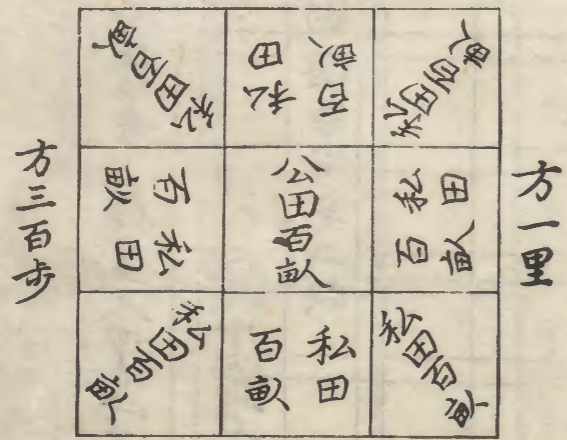 方一里
私田百畝
私田百畝
私田百畝
私田
百畝
公田百畝
私田
百畝
私田百畝
私田
百畝
私田百畝
方三百步